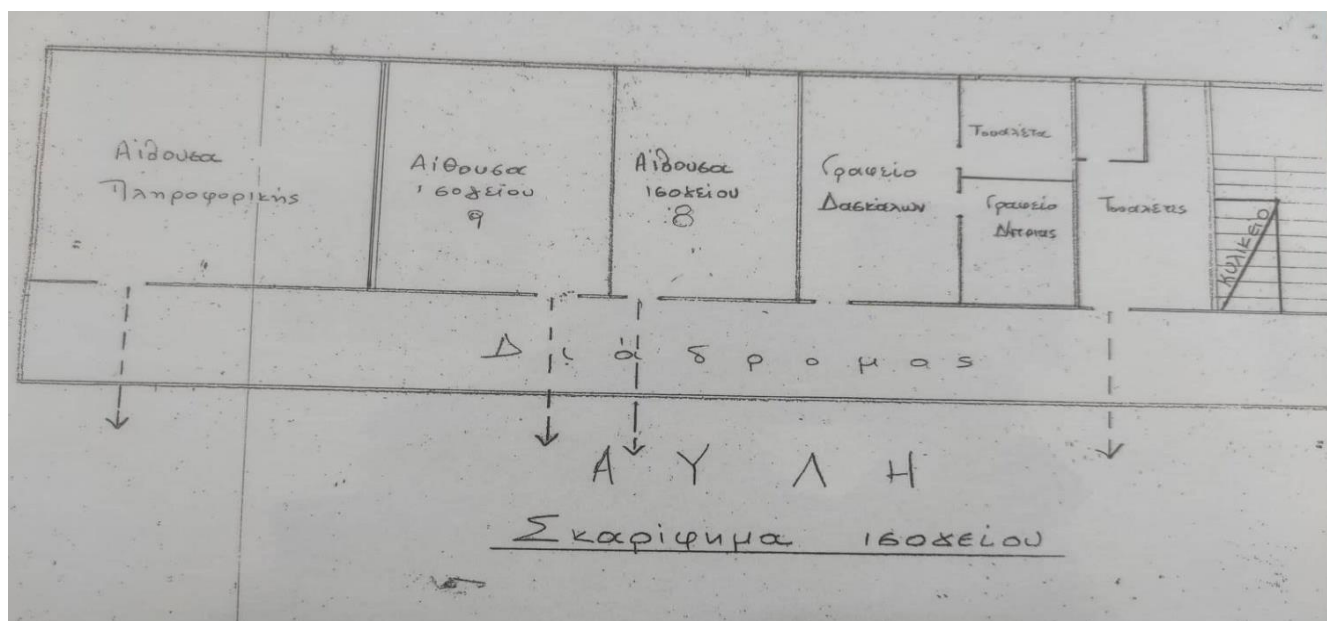 Αίθουσα
Πληροφορικής
Αίθουσα
ισογείου
9
Αίθουσα
ισογείου
8
Γραφείο
Δασκάλων
Τουαλέτα
Γραφείο
Δ/ντριας
Τουαλέτες
Κυλικείο
Διάδρομος
ΑΥΛΗ
Σκαρίφημα ισογείου